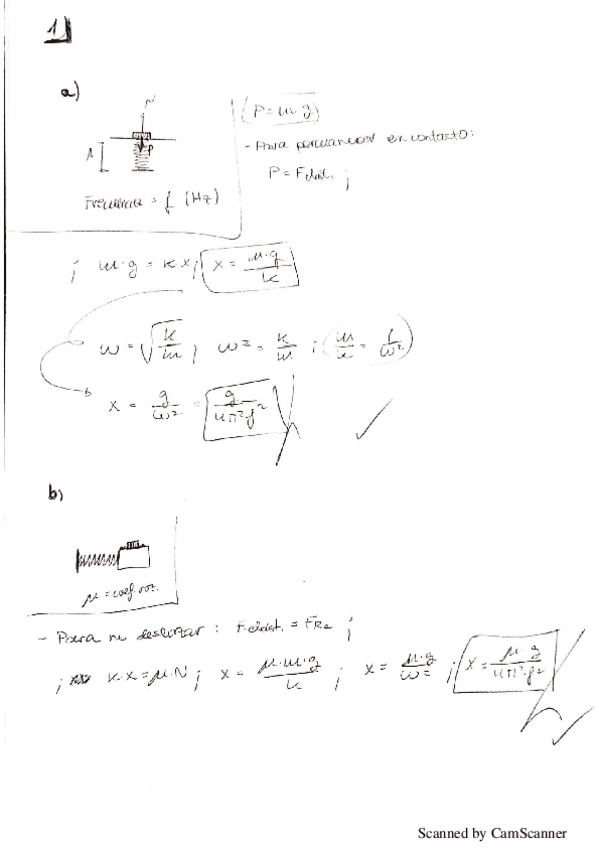 1)
a)
N
P
A
Frecuencia = f (Hz)
(P = m·g)
- Para permanecer en contacto:
P = Felást. ;
; m·g = k x ; x = m·g / k
ω = √(k/m) ; ω² = k/m ; (m/k = 1/ω²)
x = g/ω² = g / 4π²f²
b)
μ = coef. roz.
- Para no deslizar : Felást. = FRz ;
; k·x = μ·N ; x = μ·m·g / k ; x = μ·g / ω² ; x = μ·g / 4π²f²
Scanned by CamScanner